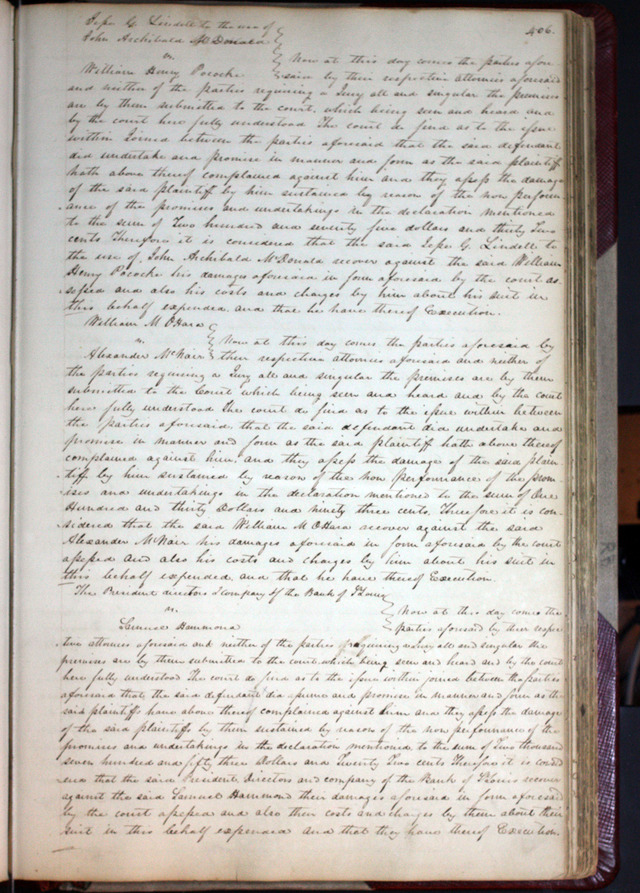 406.
Jesse G. Lindell to the use of
John Archibald McDonald
vs.
Now at this day comes the parties afore
William Henry Pococke
said by their respective attornies aforesaid
and neither of the parties requiring a Jury all and singular the premises
are by them submitted to the court, which being seen and heard and
by the court here fully understood The court do find as to the issue
within Joined between the parties aforesaid that the said defendant
did undertake and promise in manner and form as the said plaintiff
hath above thereof complained against him and they assess the damage
of the said plaintiff by him sustained by reason of the non perform
ance of the promises and undertakings in the declaration mentioned
to the sum of Two hundred and seventy five dollars and thirty Two
cents Therefore it is considered that the said Jesse G. Lindell to
the use of John Archibald McDonald recover against the said William
Henry Pococke his damages aforesaid in form aforesaid by the court as-
sessed and also his costs and charges by him about his suit in
this behalf expended, and that he have thereof Execution.
William M OHara
vs.
Now at this day comes the parties aforesaid by
Alexander McNair
their respective attornies aforesaid and neither of
the parties requiring a Jury all and singular the premises are by them
submitted to the Court which being seen and heard and by the court
here fully understood The court do find as to the issue within between
the parties aforesaid, that the said defendant did undertake and
promise in manner and form as the said plaintiff hath above thereof
complained against him, and they assess the damage of the said plain
tiff by him sustained by reason of the non performance of the prom-
ises and undertakings in the declaration mentioned to the sum of One
Hundred and thirty Dollars and ninety three cents. Therefore it is con-
sidered that the said William M OHara recover against the said
Alexander McNair his damages aforesaid in form aforesaid by the court
assessed and also his costs and charges by him about his suit in
this behalf expended and that he have thereof Execution.
The President directors & company of the Bank of St Louis
vs.
Now at this day comes the
Samuel Hammond
parties aforesaid by their respec
tive attornies aforesaid and neither of the parties requiring a Jury all and singular the
premises are by them submitted to the court, which being seen and heard and by the court
here fully understood The court do find as to the issue within joined between the parties
aforesaid that the said defendant did assume and promise in manner and form as the
said plaintiffs have above thereof complained against him and they assess the damage
of the said plaintiffs by them sustained by reason of the non performance of the
promises and undertakings in the declaration mentioned, to the sum of Two thousand
seven hundred and fifty three Dollars and Twenty Two cents Therefore it is consid
ered that the said President Directors and company of the Bank of St Louis recover
against the said Samuel Hammond their damages aforesaid in form aforesaid
by the court assessed and also their costs and charges by them about their
suit in this behalf expended and that they have thereof Execution.